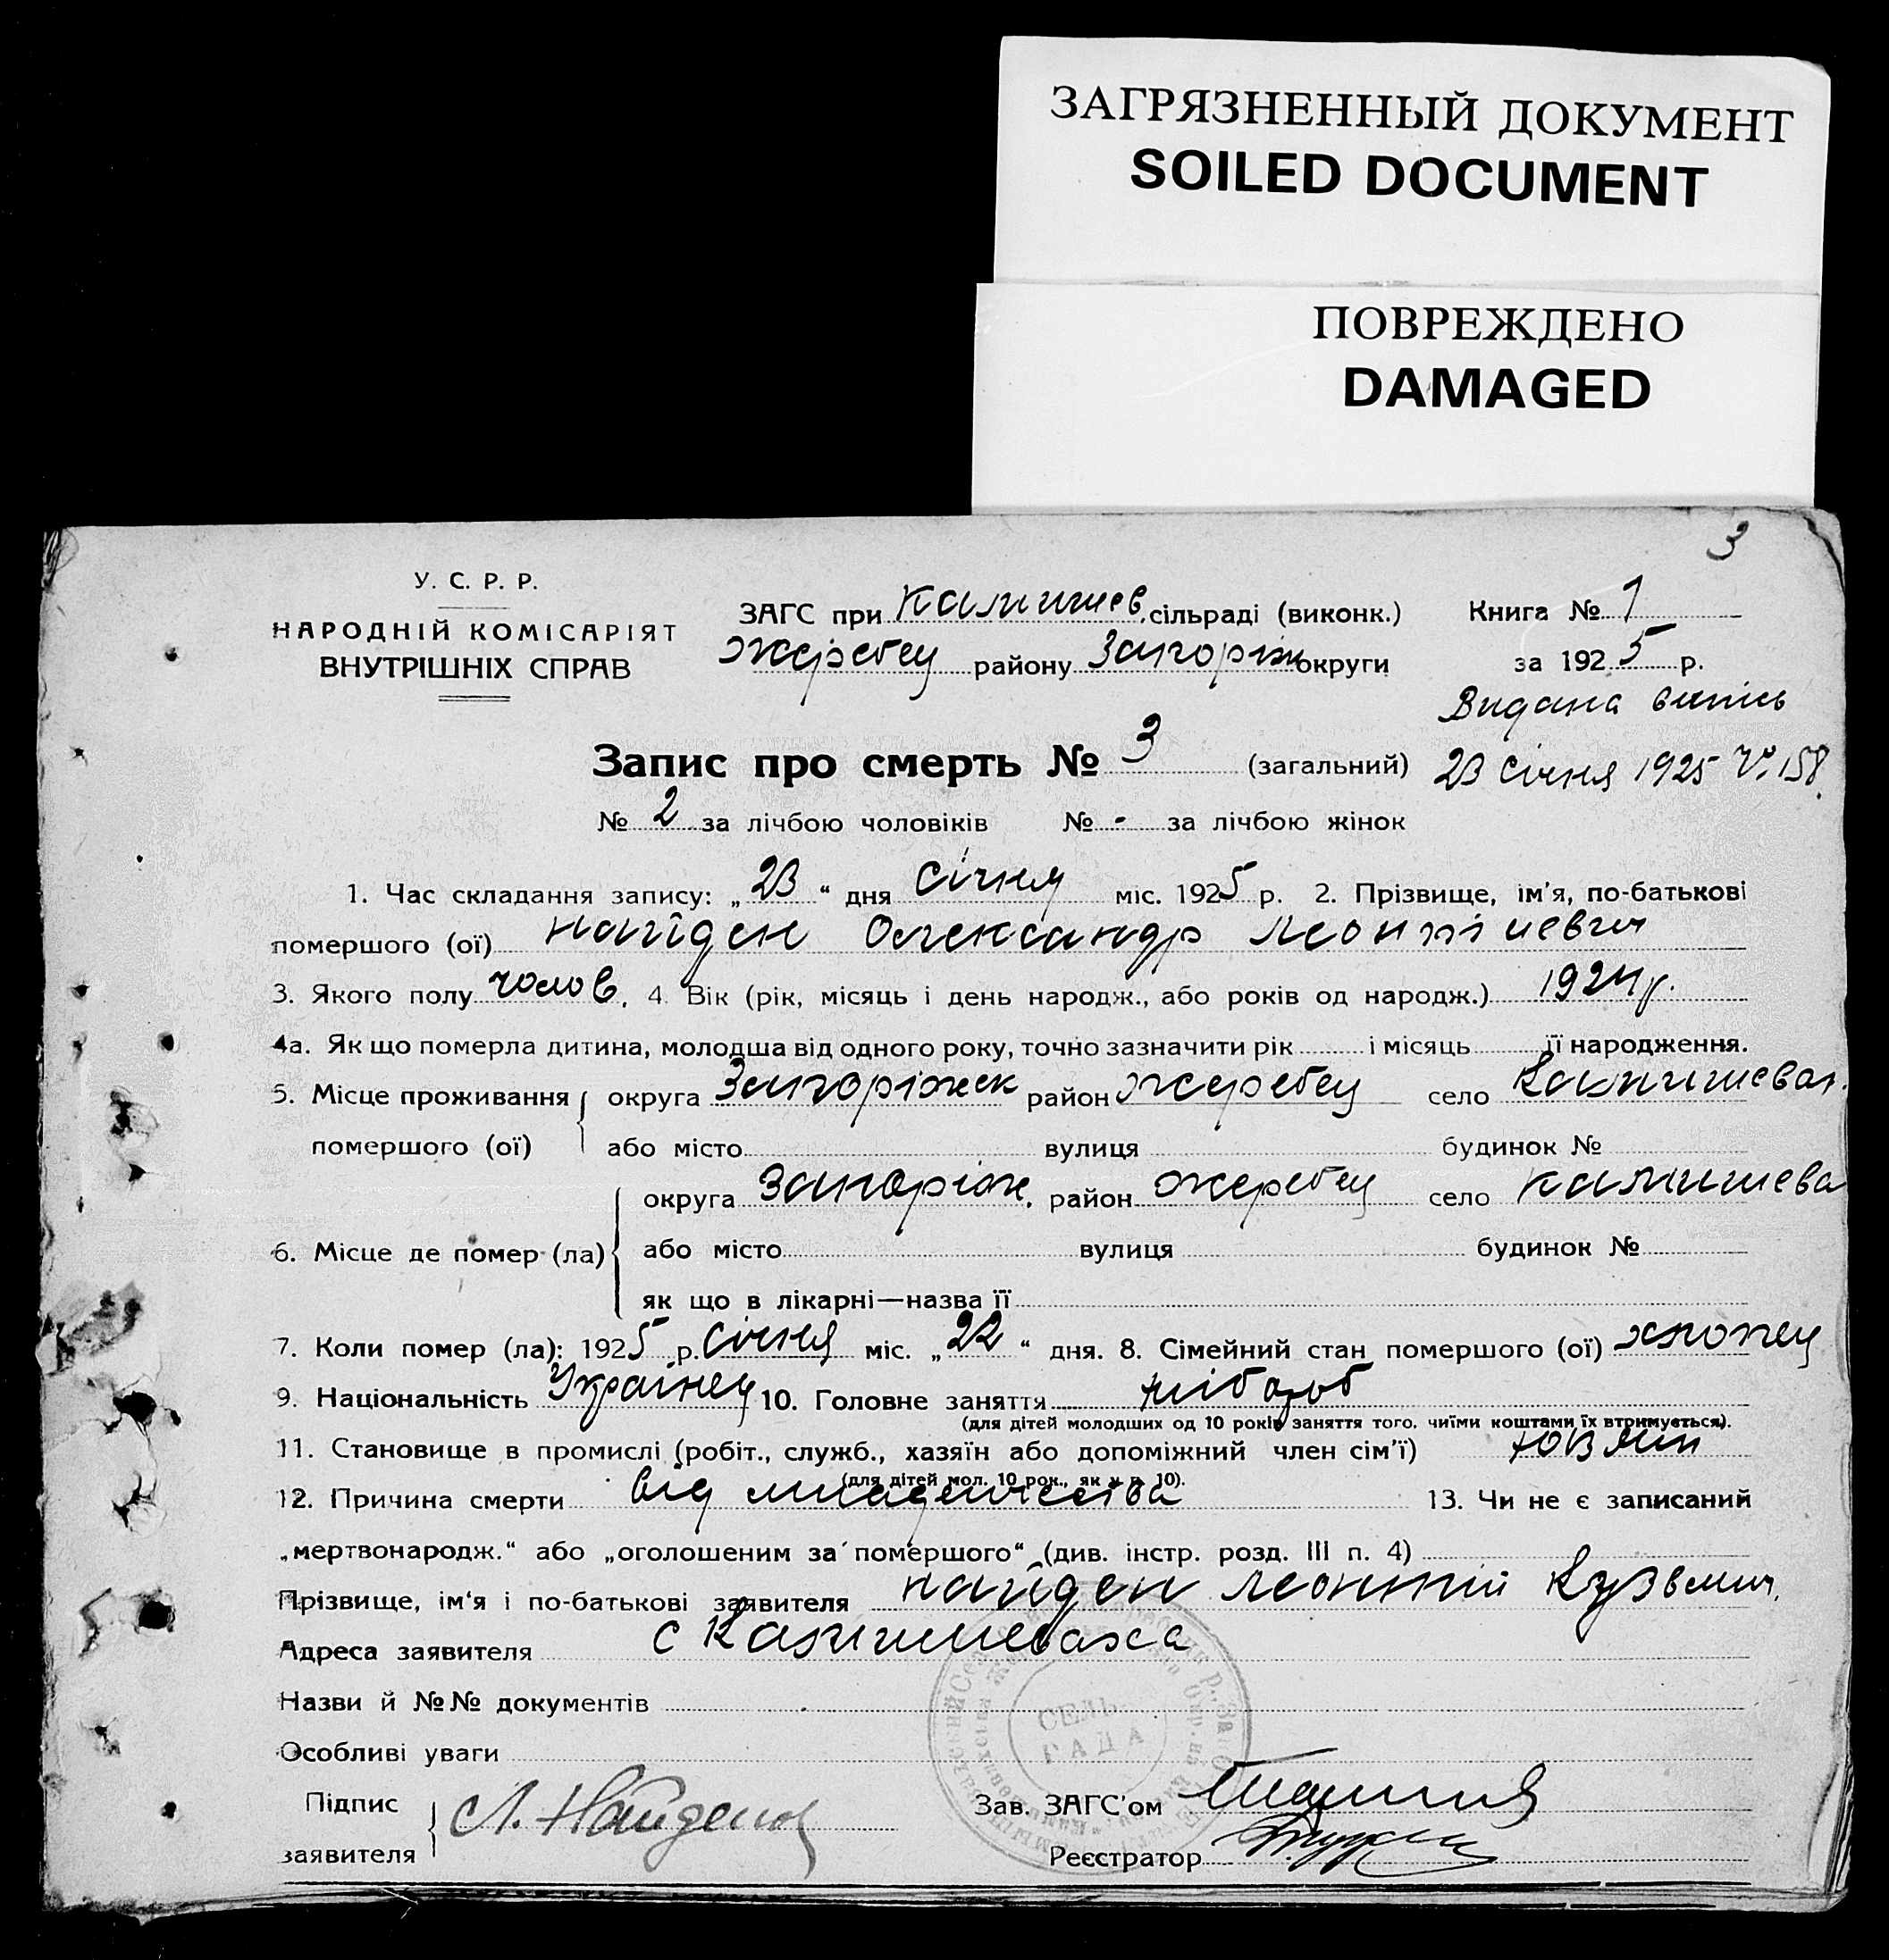 ЗАГРЯЗНЕННЫЙ ДОКУМЕНТ
SOILED DOCUMENT
ПОВРЕЖДЕНО
DAMAGED
3
У. С. Р. Р.
НАРОДНІЙ КОМІСАРІЯТ
ВНУТРІШНІХ СПРАВ
ЗАГС при Камишев. сільраді (виконк.) Книга № 1
Жеребец району Запоріж округи за 1925 р.
Видана випись
23 Січня 1925 № 158.
Запис про смерть № 3 (загальний)
№ 2 за лічбою чоловіків № - за лічбою жінок
1. Час складання запису: „23“ дня Січня міс. 1925 р. 2. Прізвище, ім'я, по-батькові
помершого (ої) Найден Олександр Леонтіевич
3. Якого полу чолов. 4. Вік (рік, місяць і день народж., або років од народж.) 1924 р.
4а. Як що померла дитина, молодша від одного року, точно зазначити рік і місяць її народження.
5. Місце проживання помершого (ої) округа Запоріжск район Жеребец село Камишевах.
або місто вулиця будинок №
6. Місце де помер (ла) округа Запоріж. район Жеребец село Камишева
або місто вулиця будинок №
як що в лікарні—назва її
7. Коли помер (ла): 1925 р. Січня міс. „22“ дня. 8. Сімейний стан помершого (ої) хлопец
9. Національність Українец 10. Головне заняття хлібороб
(для дітей молодших од 10 років заняття того, чиїми коштами їх втримується).
11. Становище в промислі (робіт., служб., хазяїн або допоміжний член сім'ї)
(для дітей мол. 10 рок., як у п. 10).
12. Причина смерти від младенчества 13. Чи не є записаний
„мертвонародж.“ або „оголошеним за померщого“ (див. інстр. розд. III п. 4)
Прізвище, ім'я і по-батькові заявителя Найден Леонтій Кузьмич.
Адреса заявителя с Камишеваха
Назви й №№ документів
Особливі уваги
СЕЛЬ
РАДА
Підпис заявителя Л. Найденов
Зав. ЗАГС'ом
Реєстратор